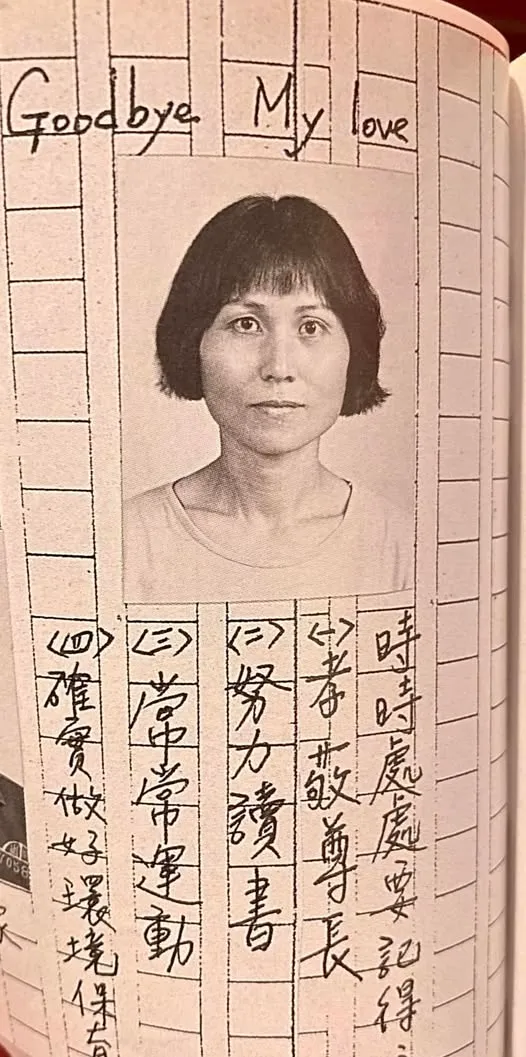 Goodbye My love
時時處處要記得：
〈一〉孝敬尊長
〈二〉努力讀書
〈三〉常常運動
〈四〉確實做好環境保育